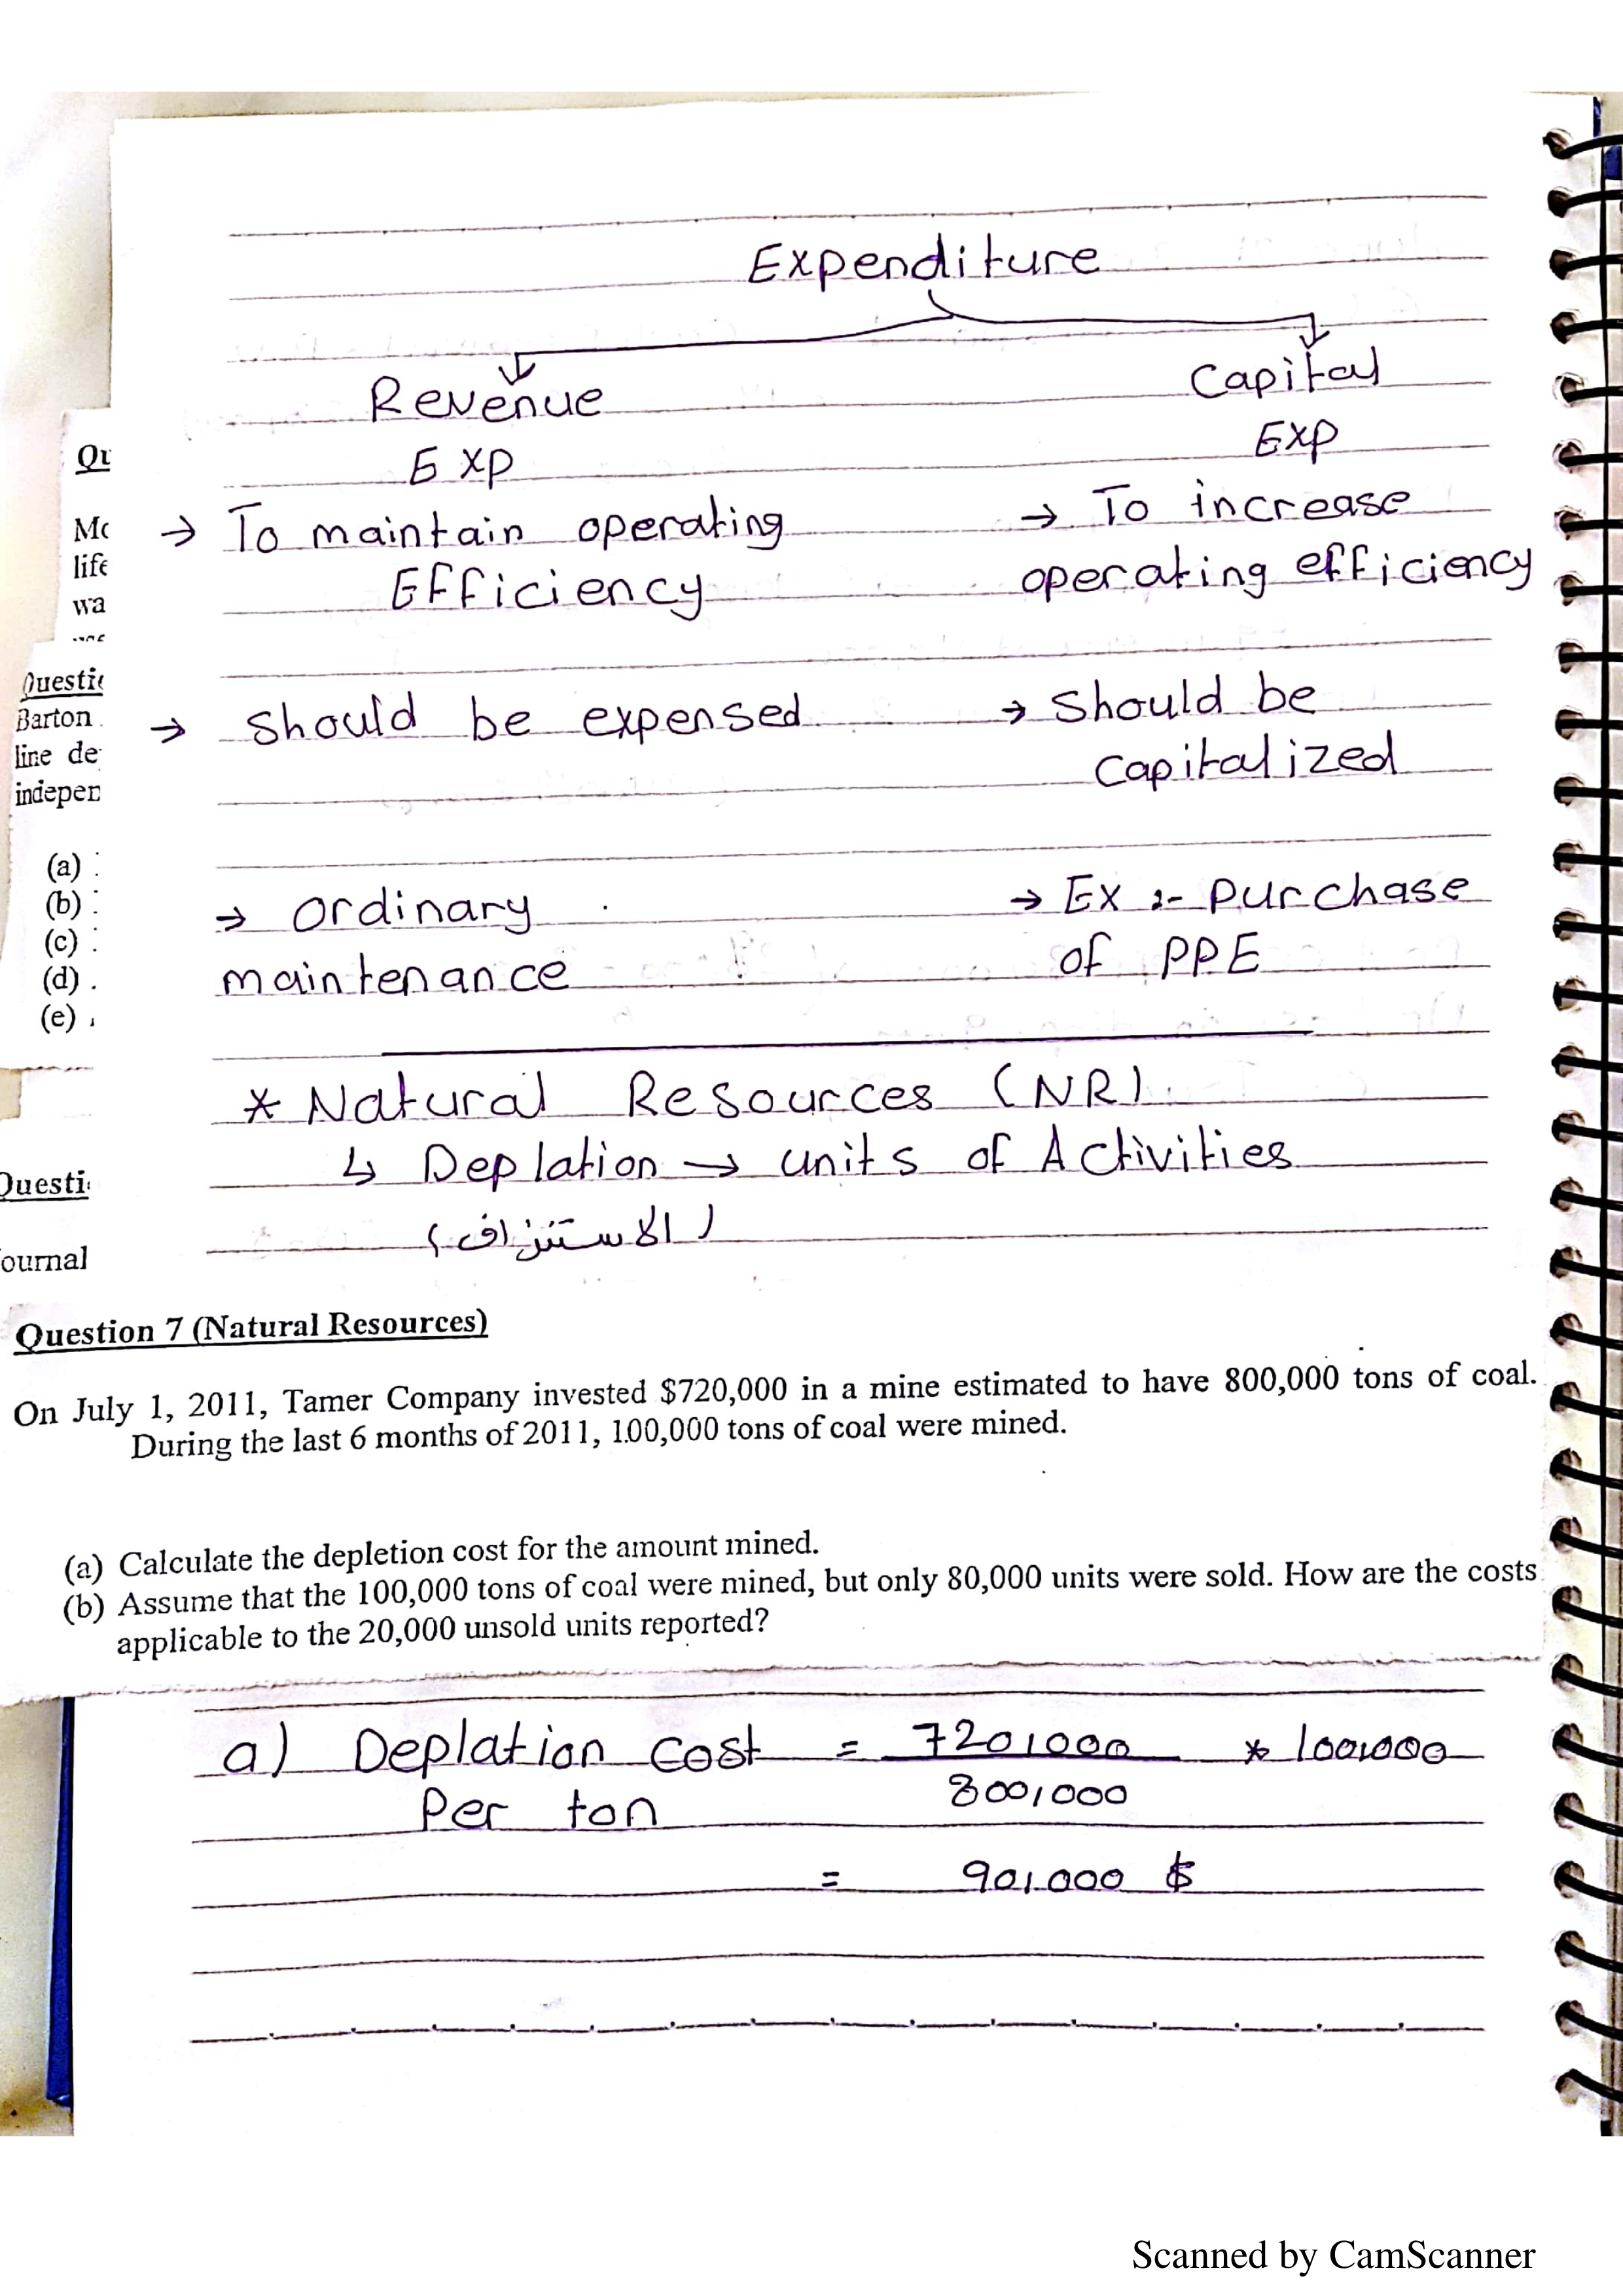 Expenditure
Revenue
Exp
Capital
Exp
→ To maintain operating
Efficiency
→ To increase
operating efficiency
→ should be expensed
→ should be
capitalized
→ ordinary
maintenance
→ Ex :- purchase
of PPE
* Natural Resources (NR)
↳ Deplation → units of Activities
(الاستنزاف)
Qu
Mo
life
wa
Questi
Barton
line de
indepen
(a)
(b)
(c)
(d)
(e)
Questi
ournal
Question 7 (Natural Resources)
On July 1, 2011, Tamer Company invested $720,000 in a mine estimated to have 800,000 tons of coal.
During the last 6 months of 2011, 100,000 tons of coal were mined.
(a) Calculate the depletion cost for the amount mined.
(b) Assume that the 100,000 tons of coal were mined, but only 80,000 units were sold. How are the costs
applicable to the 20,000 unsold units reported?
a) Deplation cost = 720,000 * 100,000
Per ton 800,000
= 90,000 $
Scanned by CamScanner